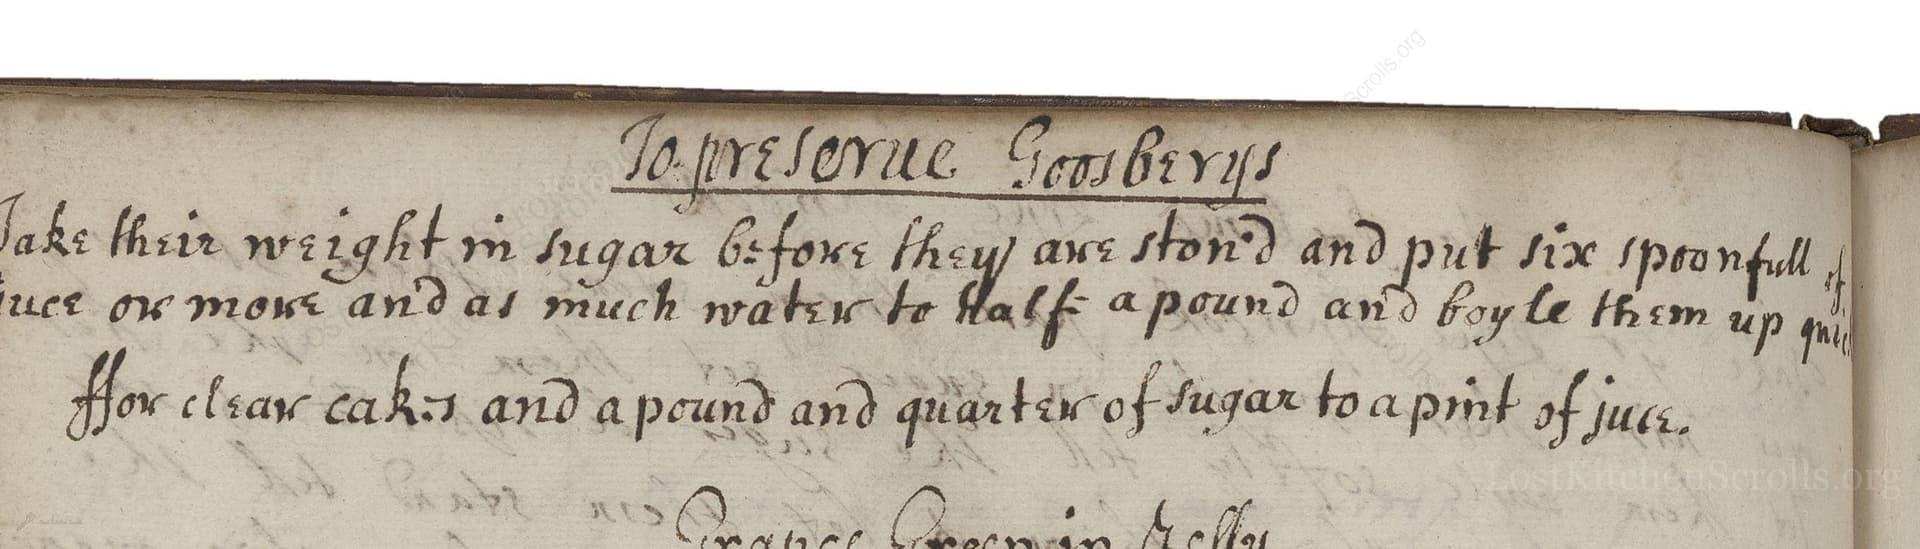 To preserue Goosberys
Take their weight in sugar before they are ston'd and put six spoonfull of
juce or more and as much water to half a pound and boyle them up quic
ffor clear cakes and a pound and quarter of sugar to a pint of juce.
Grapes Green in Jelly
LostKitchenScrolls.org
Scrolls.org